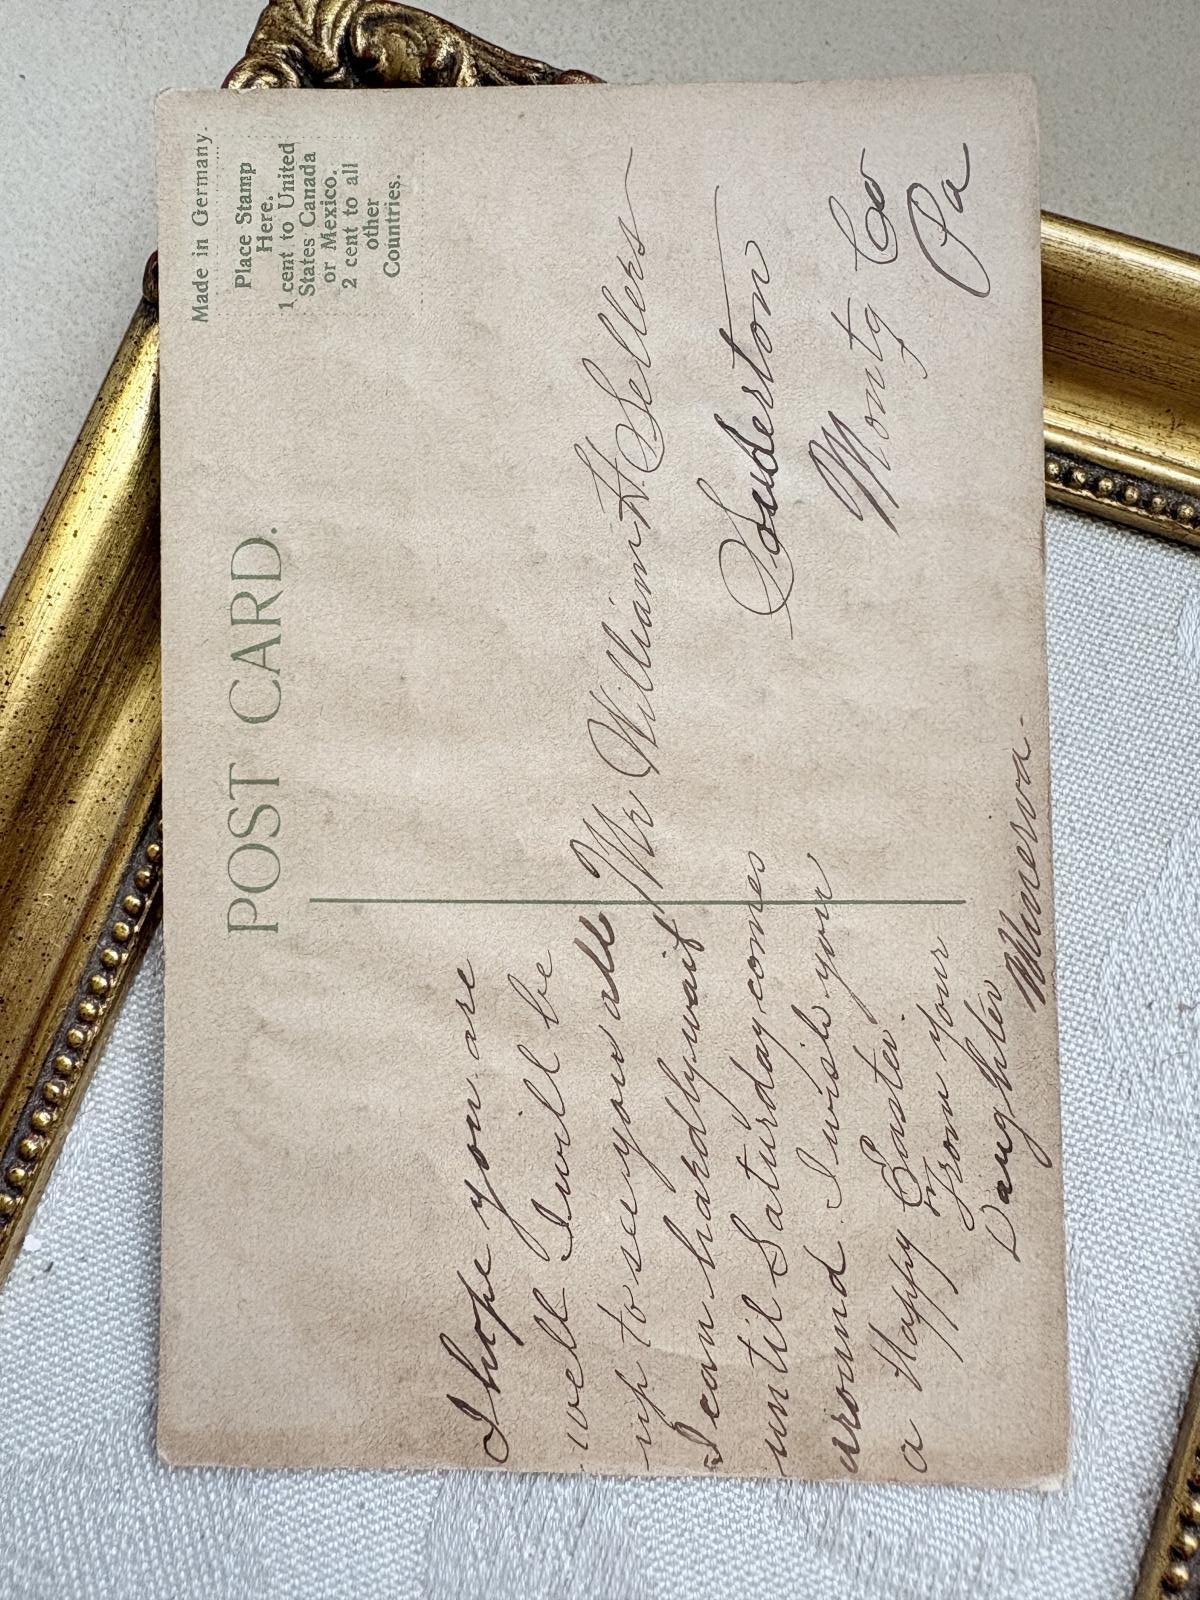 Made in Germany.
POST CARD.
Place Stamp
Here.
1 cent to United
States Canada
or Mexico.
2 cent to all
other
Countries.
I hope you are
well I will be
up to see yous all
I can hardly wait
until Saturday comes
around. I wish you
a Happy Easter.
From your
Daughter
Minerva.
Mr William H Sellers
Souderton
Montg Co
Pa